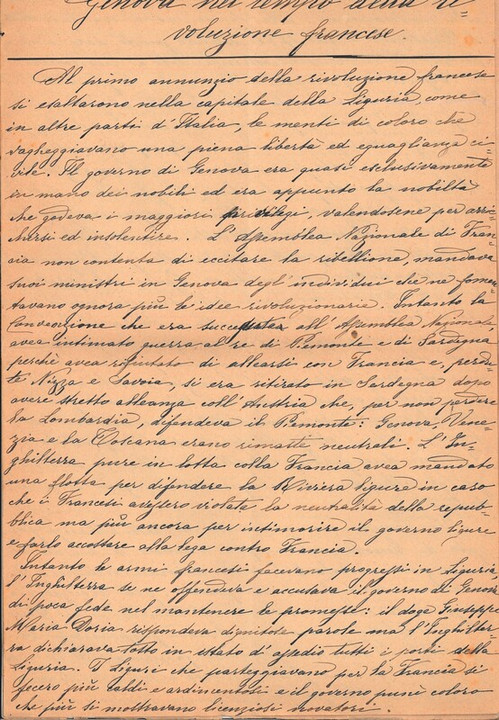 Genova nel tempo della ri=
voluzione francese.
Al primo annunzio della rivoluzione francese
si esaltarono nella capitale della Liguria, come
in altre parti d'Italia, le menti di coloro che
vagheggiavano una piena libertà ed eguaglianza ci=
vile. Il governo di Genova era quasi esclusivamente
in mano dei nobili ed era appunto la nobiltà
che godeva i maggiori privilegi, valendosene per arri=
chirsi ed insolentire. L'Assemblea Nazionale di Fran=
cia non contenta di eccitare la ribellione, mandava
suoi ministri in Genova degl'individui che ne fomen=
tavano ognora più le idee rivoluzionarie. Intanto la
Convenzione che era succeduta all'Assemblea Nazionale
avea intimato guerra al re di Piemonte e di Sardegna
perchè avea rifiutato di allearsi con Francia e, perdu=
te Nizza e Savoia, si era ritirato in Sardegna dopo
avere stretto alleanza coll'Austria che, per non perdere
la Lombardia, difendeva il Piemonte: Genova Vene=
zia e la Toscana erano rimaste neutrali. L'In=
ghilterra pure in lotta colla Francia avea mandato
una flotta per difendere la Riviera ligure in caso
che i Francesi avessero violata la neutralità della repub=
blica ma più ancora per intimorire il governo ligure
e farlo accostare alla lega contro Francia.
Intanto le armi francesi facevano progressi in Liguria
l'Inghilterra se ne offendeva e accusava il governo di Genova
di poca fede nel mantenere le promesse: il doge Giuseppe
Maria Doria rispondeva dignitose parole ma l'Inghilter=
ra dichiarava tosto in istato d'assedio tutti i porti della
Liguria. I liguri che parteggiavano per la Francia si
fecero più caldi e ardimentosi e il governo punì coloro
che più si mostravano licenziosi novatori.